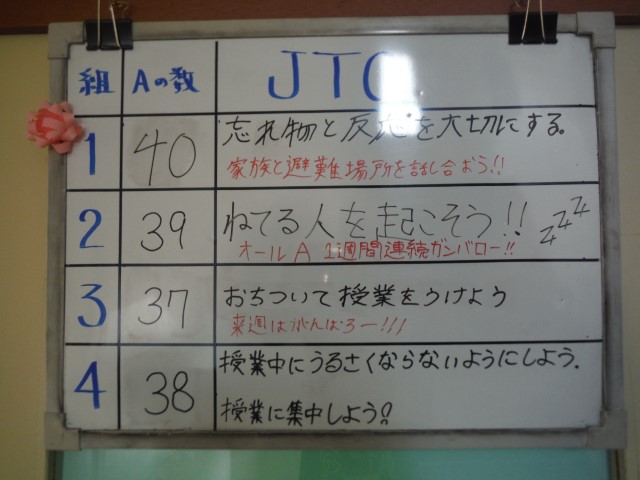 組 Aの数 JTC
1 40 忘れ物と反応を大切にする。
家族と避難場所を話し合おう!!
2 39 ねてる人を起こそう!! zzz
オールA 1週間連続ガンバロー!!
3 37 おちついて授業をうけよう
来週はがんばろー!!!
4 38 授業中にうるさくならないようにしよう.
授業に集中しよう!!